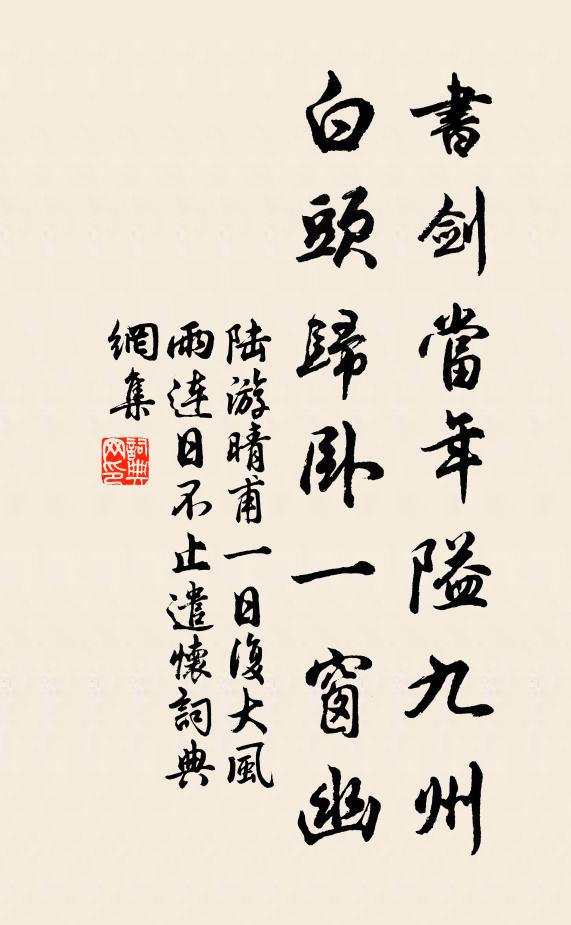 書劍當年隘九州
白頭歸卧一窗幽
陆游晴甫一日復大風
雨连日不止遣懷詞典
網集
詞典
网印